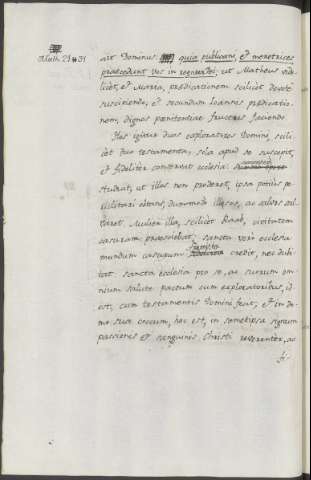 Math. 21. 31
ait Dominus: quia publicani, et meretrices
praecedunt vos in regnum dei; ut Matheus vide-
licet, et Maria, praedicationem scilicet devote
suscipiendo, et secundum Ioannis praedicatio-
nem, dignos poenitentiae fructus faciendo.
Hos igitur duos exploratores Domini, scili-
cet duo testamenta, sola apud se suscepit,
et fideliter conservat ecclesia:
studuit, ut illos non proderet, ipsa potius pe-
clitari optans, dummodo illaesos, ac salvos sal-
varet. Mulier illa, scilicet Raab, civitatem
casuram praesciebat: sancta vero ecclesia
mundum casurum credit, nec dubi-
tat sancta ecclesia pro se, ac suorum om-
nium salute pactum cum exploratoribus, id
est, cum testamentis Domini fecit; et in do-
mo sua coccum, hoc est, in semetipsa signum
passionis et sanguinis Christi reverenter, ac
fi-